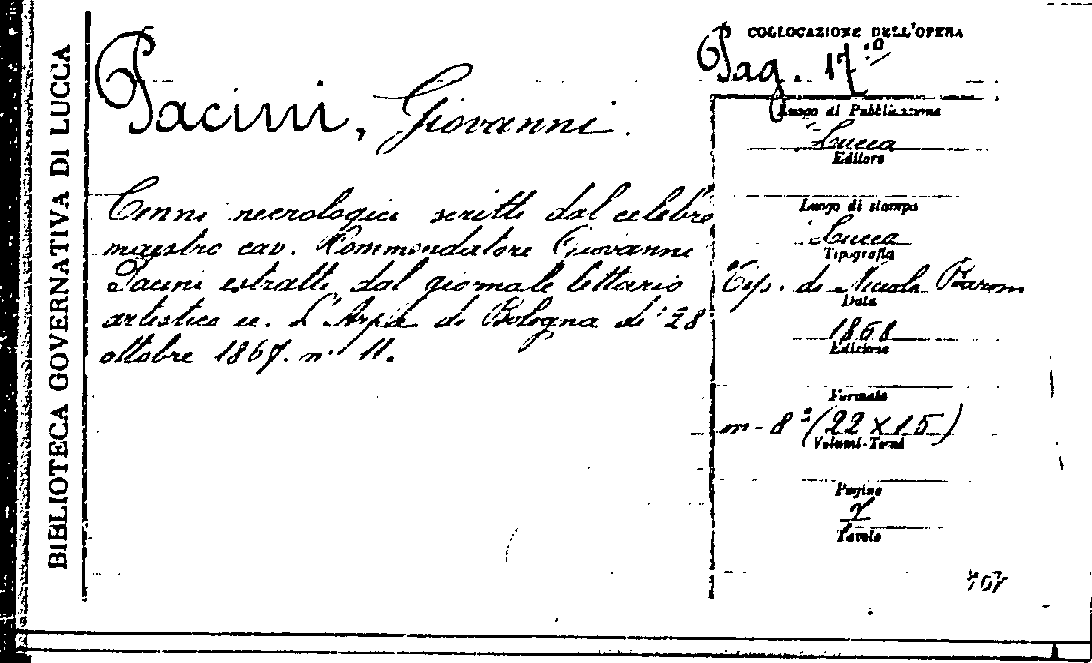 BIBLIOTECA GOVERNATIVA DI LUCCA
Pacini, Giovanni.
Cenni necrologici scritti dal celebre
maestro cav. Kommendatore Giovanni
Pacini estratti dal giornale lettario
artistico ec. L'Arpa di Bologna di 28
ottobre 1867. n. 11.
COLLOCAZIONE DELL'OPERA
Pag. 17
Luogo di Pubblicazione
Lucca
Editore
Luogo di stampa
Lucca
Tipografia
Tip. di Nicola Baroni
Data
1868
Edizione
Formato
in-8° (22 x 15)
Volumi-Tomi
Pagine
7
Tavole
707